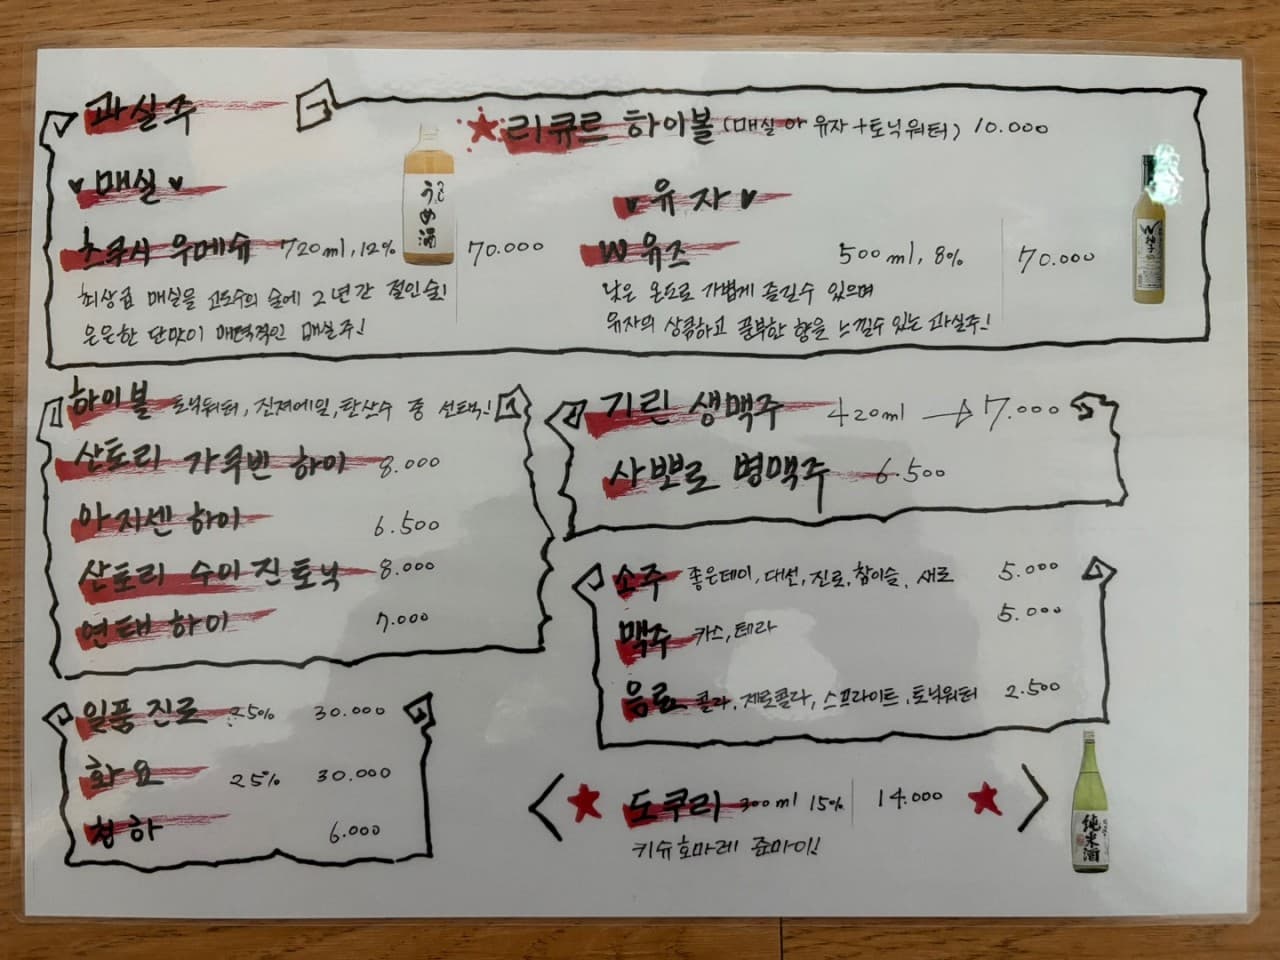 과실주
★리큐르 하이볼 (매실 or 유자+토닉워터) 10.000
♥매실♥
츠쿠시 우메슈 720ml, 12% 70.000
최상급 매실을 고도수의 술에 2년간 절인술!
은은한 단맛이 매력적인 매실주!
うめ酒
♥유자♥
W 유즈 500ml, 8% 70.000
낮은 온도로 가볍게 즐길수 있으며
유자의 상큼하고 풍부한 향을 느낄수 있는 과실주!
W
하이볼 토닉워터, 진저에일, 탄산수 중 선택!
산토리 가쿠빈 하이 8.000
아지센 하이 6.500
산토리 수이 진토닉 8.000
연태 하이 7.000
기린 생맥주 420ml → 7.000
사뽀로 병맥주 6.500
소주 좋은데이, 대선, 진로, 참이슬, 새로 5.000
맥주 카스, 테라 5.000
음료 콜라, 제로콜라, 스프라이트, 토닉워터 2.500
일품진로 25% 30.000
화요 25% 30.000
청하 6.000
<★ 도쿠리 300ml 15% 14.000 ★>
키슈호마레 준마이!
純米酒